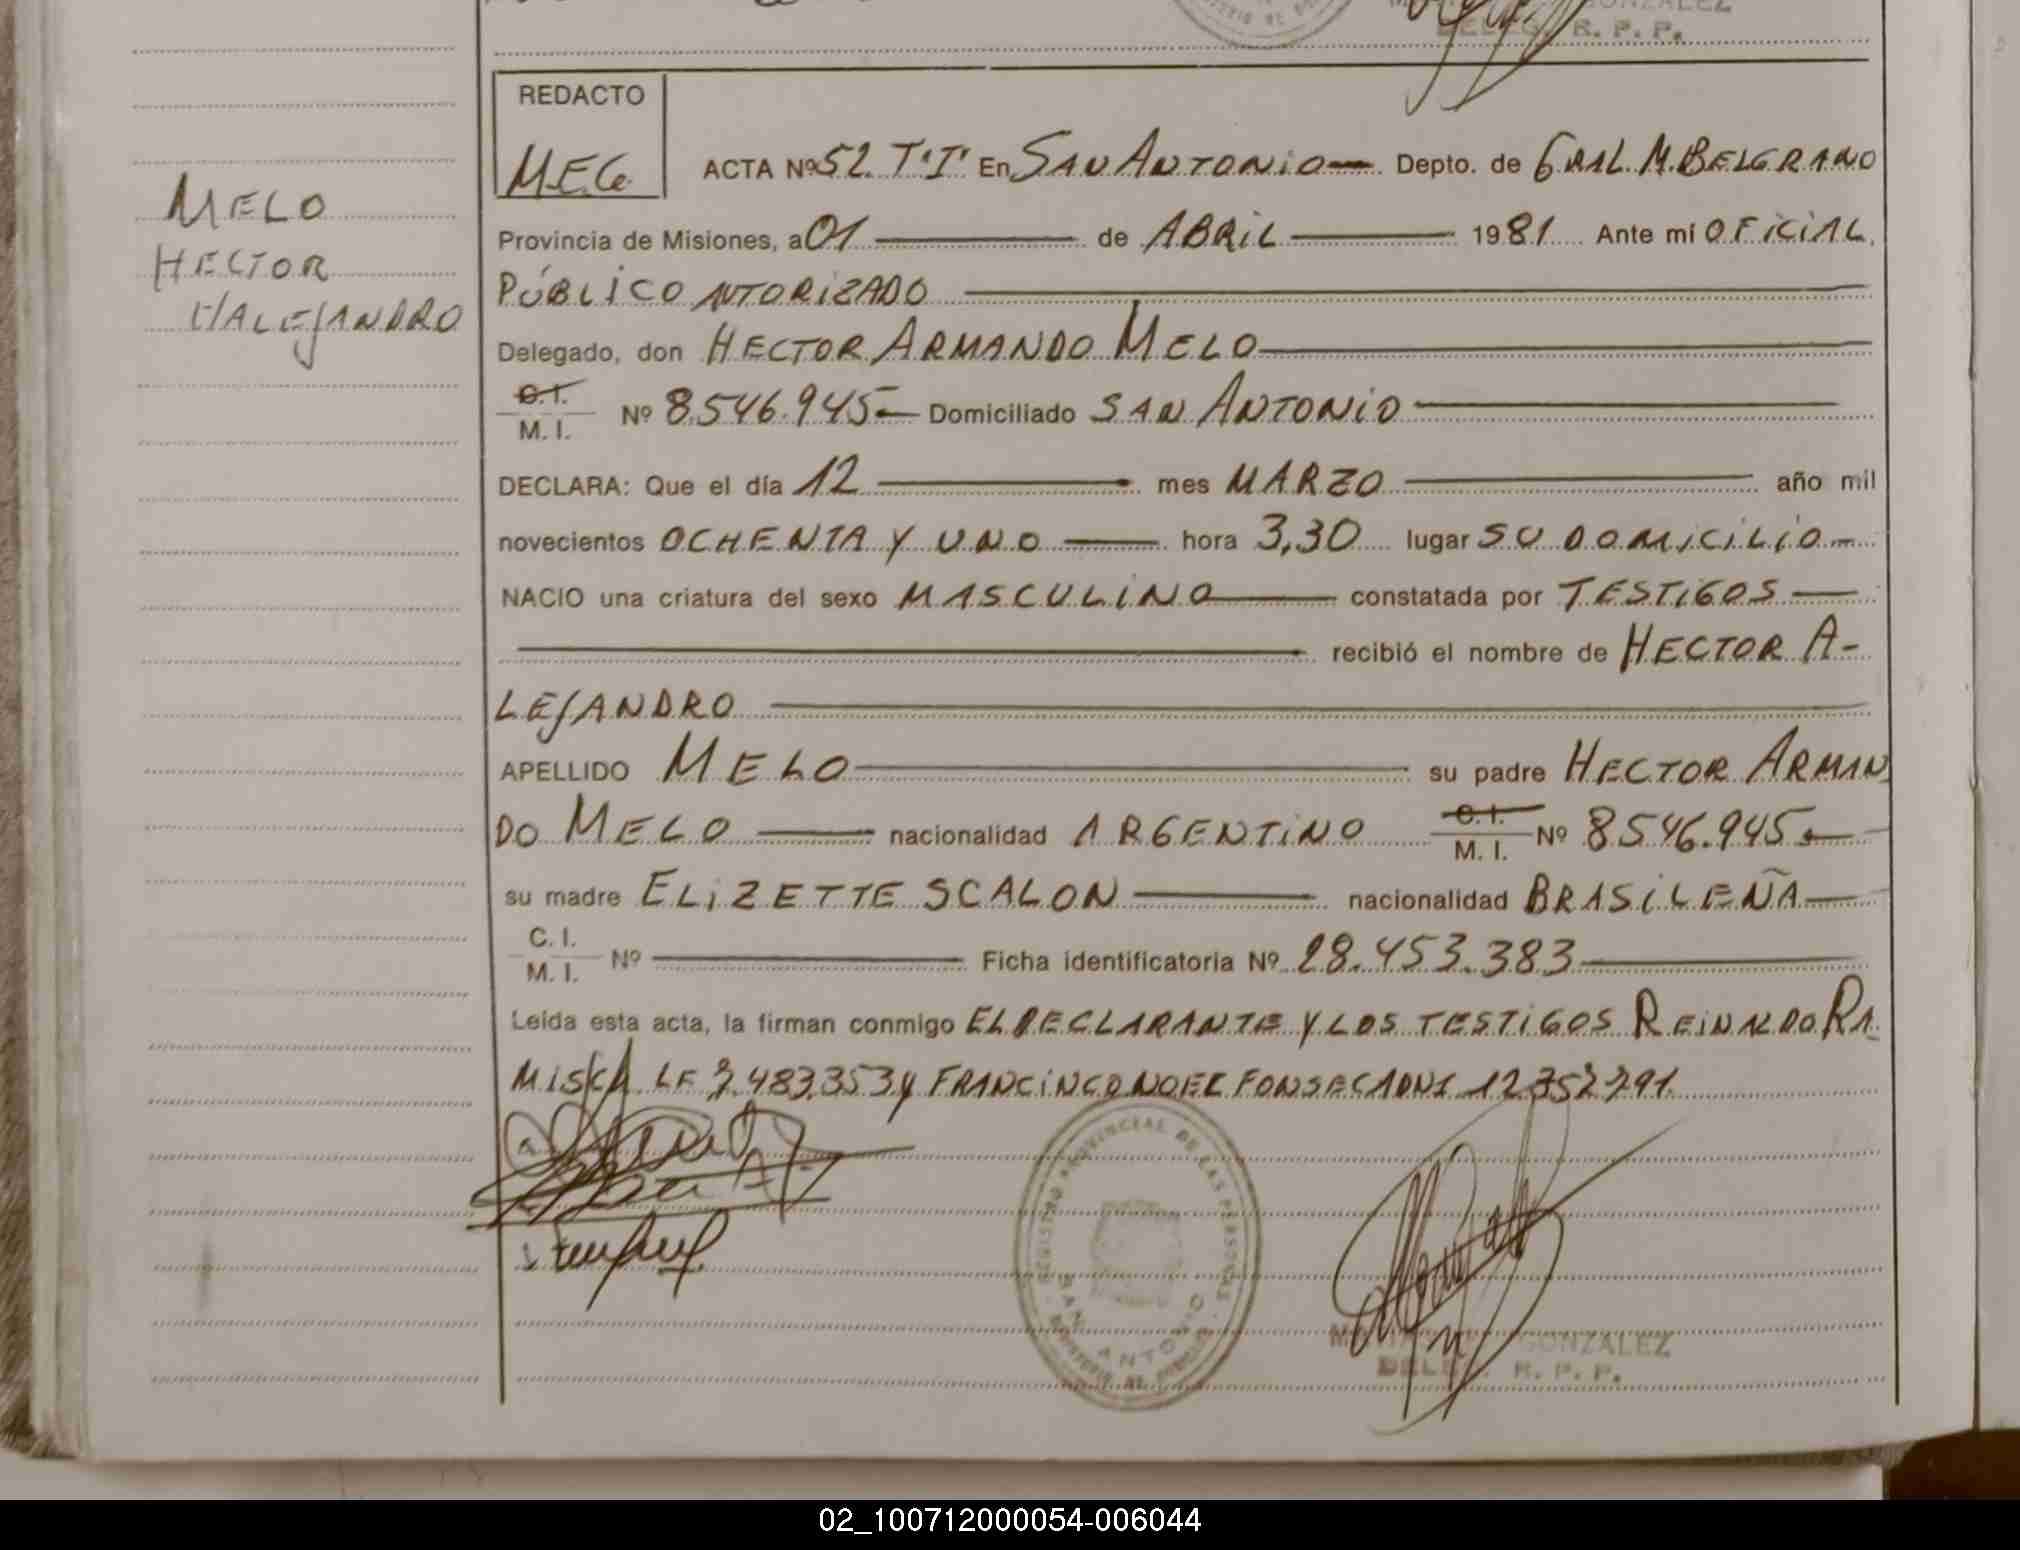 GONZALEZ
DELEG. R. P. P.
REDACTO
M.E.G.
ACTA Nº 52 T"I" En SAN ANTONIO Depto. de GRAL. M. BELGRANO
MELO
HECTOR
HALEJANDRO
Provincia de Misiones, a 01 de ABRIL 1981 Ante mí OFICIAL
PÚBLICO AUTORIZADO
Delegado, don HECTOR ARMANDO MELO
C. I.
M. I. Nº 8.546.945 Domiciliado SAN ANTONIO
DECLARA: Que el día 12 mes MARZO año mil
novecientos OCHENTA Y UNO hora 3,30 lugar SU DOMICILIO
NACIO una criatura del sexo MASCULINO constatada por TESTIGOS
recibió el nombre de HECTOR A-
LEJANDRO
APELLIDO MELO su padre HECTOR ARMAN
DO MELO nacionalidad ARGENTINO C. I. M. I. Nº 8.546.945
su madre ELIZETTE SCALON nacionalidad BRASILEÑA
C. I.
M. I. Nº Ficha identificatoria Nº 28.453.383
Leída esta acta, la firman conmigo EL DECLARANTE Y LOS TESTIGOS REINALDO RA
MISCH LE 7.483.353 y FRANCINCO NOEL FONSECA DNI 12.352.791
REGISTRO PROVINCIAL DE LAS PERSONAS
SAN ANTONIO
MINISTERIO DE GOBIERNO
GONZALEZ
DELEG. R. P. P.
02_100712000054-006044